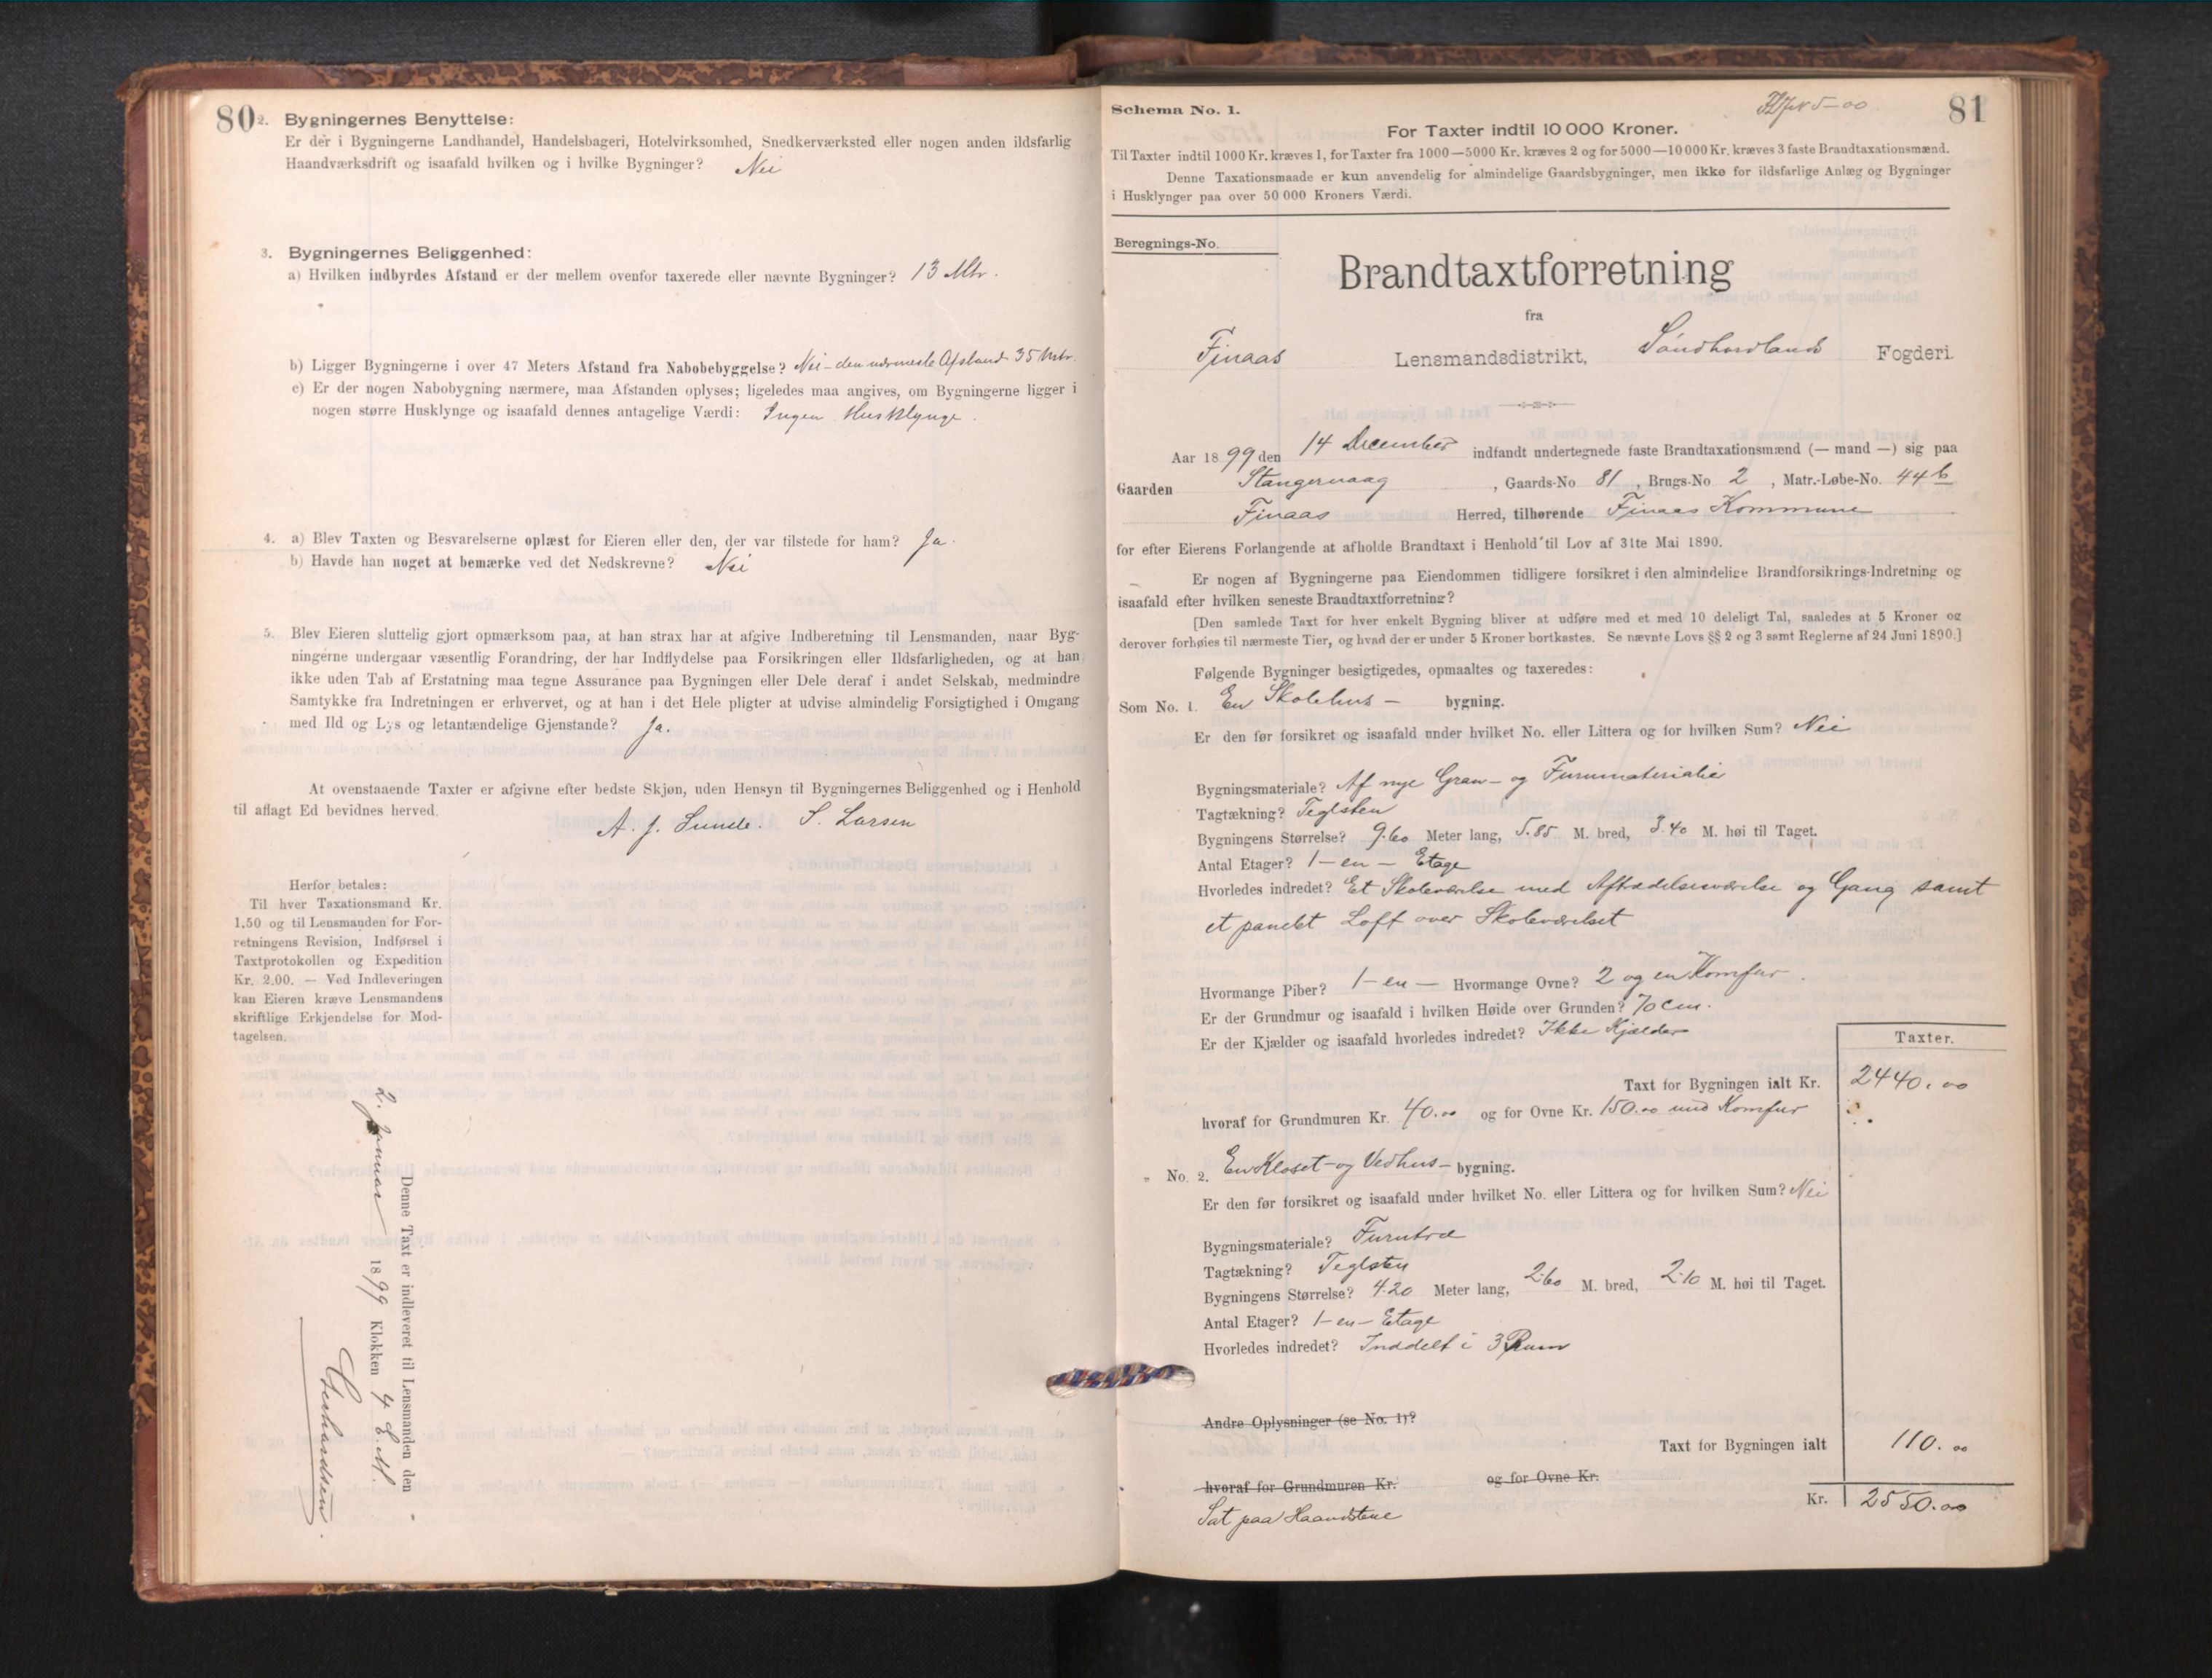 80
2. Bygningernes Benyttelse:
Er der i Bygningerne Landhandel, Handelsbageri, Hotelvirksomhed, Snedkerværksted eller nogen anden ildsfarlig
Haandværksdrift og isaafald hvilken og i hvilke Bygninger? Nei
3. Bygningernes Beliggenhed:
a) Hvilken indbyrdes Afstand er der mellem ovenfor taxerede eller nævnte Bygninger? 13 Mtr.
b) Ligger Bygningerne i over 47 Meters Afstand fra Nabobebyggelse? Nei - den nærmeste Afstand 35 Mtr.
c) Er der nogen Nabobygning nærmere, maa Afstanden oplyses; ligeledes maa angives, om Bygningerne ligger i
nogen større Husklynge og isaafald dennes antagelige Værdi: Ingen Husklynge.
4. a) Blev Taxten og Besvarelserne oplæst for Eieren eller den, der var tilstede for ham? Ja.
b) Havde han noget at bemærke ved det Nedskrevne? Nei
5. Blev Eieren sluttelig gjort opmærksom paa, at han strax har at afgive Indberetning til Lensmanden, naar Byg-
ningerne undergaar væsentlig Forandring, der har Indflydelse paa Forsikringen eller Ildsfarligheden, og at han
ikke uden Tab af Erstatning maa tegne Assurance paa Bygningen eller Dele deraf i andet Selskab, medmindre
Samtykke fra Indretningen er erhvervet, og at han i det Hele pligter at udvise almindelig Forsigtighed i Omgang
med Ild og Lys og letantændelige Gjenstande? Ja.
At ovenstaaende Taxter er afgivne efter bedste Skjøn, uden Hensyn til Bygningernes Beliggenhed og i Henhold
til aflagt Ed bevidnes herved.
A. J. Sunde. S. Larsen
Herfor betales:
Til hver Taxationsmand Kr.
1,50 og til Lensmanden for For-
retningens Revision, Indførsel i
Taxtprotokollen og Expedition
Kr. 2.00. — Ved Indleveringen
kan Eieren kræve Lensmandens
skriftlige Erkjendelse for Mod-
tagelsen.
Denne Taxt er indleveret til Lensmanden den
2. Januar 1899 Klokken 4 E.M.
81
Schema No. 1.
5-00
For Taxter indtil 10 000 Kroner.
Til Taxter indtil 1000 Kr. kræves 1, for Taxter fra 1000—5000 Kr. kræves 2 og for 5000—10 000 Kr. kræves 3 faste Brandtaxationsmænd.
Denne Taxationsmaade er kun anvendelig for almindelige Gaardsbygninger, men ikke for ildsfarlige Anlæg og Bygninger
i Husklynger paa over 50 000 Kroners Værdi.
Beregnings-No.
Brandtaxtforretning
fra
Finaas Lensmandsdistrikt, Søndhordlands Fogderi.
Aar 1899 den 14 December indfandt undertegnede faste Brandtaxationsmænd (— mand —) sig paa
Gaarden Stangervaag, Gaards-No 81, Brugs-No 2, Matr.-Løbe-No. 44 b
Finaas Herred, tilhørende Finaas Kommune
for efter Eierens Forlangende at afholde Brandtaxt i Henhold til Lov af 31te Mai 1890.
Er nogen af Bygningerne paa Eiendommen tidligere forsikret i den almindelige Brandforsikrings-Indretning og
isaafald efter hvilken seneste Brandtaxtforretning?
[Den samlede Taxt for hver enkelt Bygning bliver at udføre med et med 10 deleligt Tal, saaledes at 5 Kroner og
derover forhøies til nærmeste Tier, og hvad der er under 5 Kroner bortkastes. Se nævnte Lovs §§ 2 og 3 samt Reglerne af 24 Juni 1890.]
Følgende Bygninger besigtigedes, opmaaltes og taxeredes:
Som No. 1. En Skolehus - bygning.
Er den før forsikret og isaafald under hvilket No. eller Littera og for hvilken Sum? Nei
Bygningsmateriale? Af nye Gran- og Furumaterialie
Tagtækning? Teglsten
Bygningens Størrelse? 9.60 Meter lang, 5.85 M. bred, 3.40 M. høi til Taget.
Antal Etager? 1 - en - Etage
Hvorledes indredet? Et Skoleværelse med Aftrædelsesværelse og Gang samt
et panelt Loft over Skoleværelset
Hvormange Piber? 1 - en - Hvormange Ovne? 2 og en Komfur.
Er der Grundmur og isaafald i hvilken Høide over Grunden? 70 cm.
Er der Kjælder og isaafald hvorledes indredet? Ikke Kjælder
Taxter.
Taxt for Bygningen ialt Kr. 2440.00
hvoraf for Grundmuren Kr. 40.00 og for Ovne Kr. 150.00 med Komfur
" No. 2. En Kloset- og Vedhus- bygning.
Er den før forsikret og isaafald under hvilket No. eller Littera og for hvilken Sum? Nei
Bygningsmateriale? Furutræ
Tagtækning? Teglsten
Bygningens Størrelse? 4.20 Meter lang, 2.60 M. bred, 2.10 M. høi til Taget.
Antal Etager? 1 - en - Etage
Hvorledes indredet? Inddelt i 3 Rum
Andre Oplysninger (se No. 1)?
Taxt for Bygningen ialt 110.00
hvoraf for Grundmuren Kr. og for Ovne Kr.
Sat paa Haandstene
Kr. 2550.00